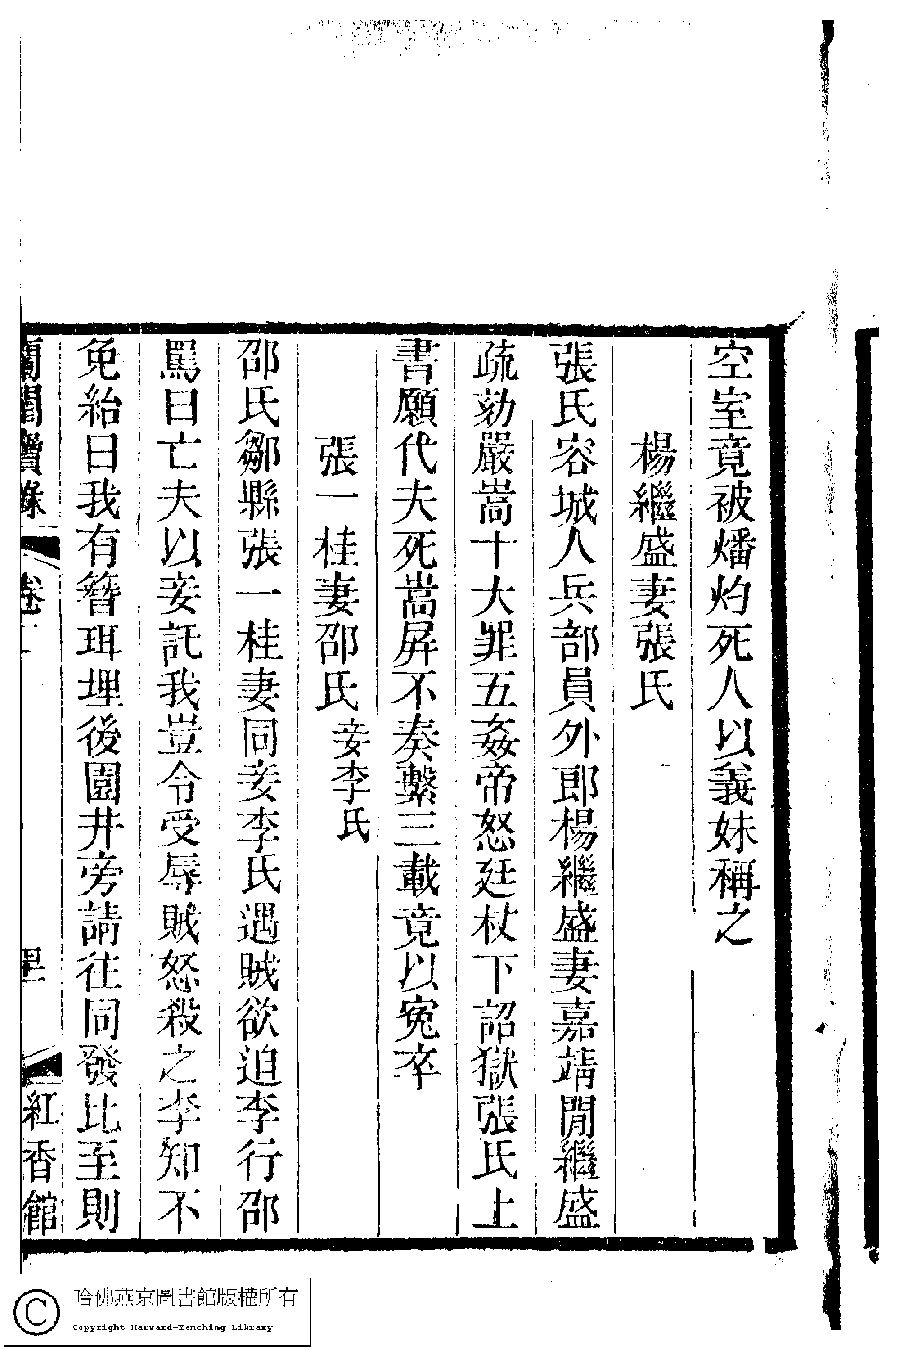 空室竟被燔灼死人以義妹稱之
楊繼盛妻張氏
張氏容城人兵部員外郎楊繼盛妻嘉靖間繼盛
疏劾嚴嵩十大罪五姦帝怒廷杖下詔獄張氏上
書願代夫死嵩屏不奏繫三載竟以冤卒
張一桂妻邵氏 妾李氏
邵氏鄒縣張一桂妻同妾李氏遇賊欲迫李行邵
罵曰亡夫以妾託我豈令受辱賊怒殺之李知不
免紿曰我有簪珥埋後園井旁請往同發比至則
蘭閨寶錄 卷 紅香館
哈佛燕京圖書館版權所有
Copyright Harvard-Yenching Library